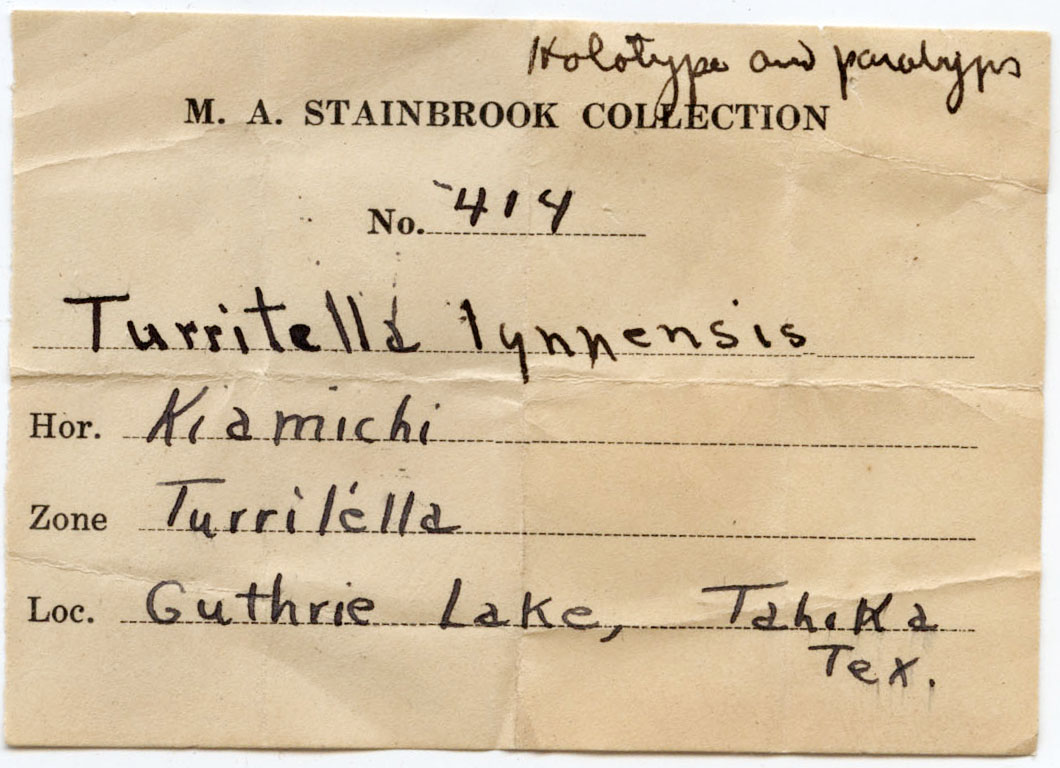 Holotype and paratyps
M. A. STAINBROOK COLLECTION
No. 414
Turritella lynnensis
Hor. Kiamichi
Zone Turritella
Loc. Guthrie Lake, Tahoka
Tex.